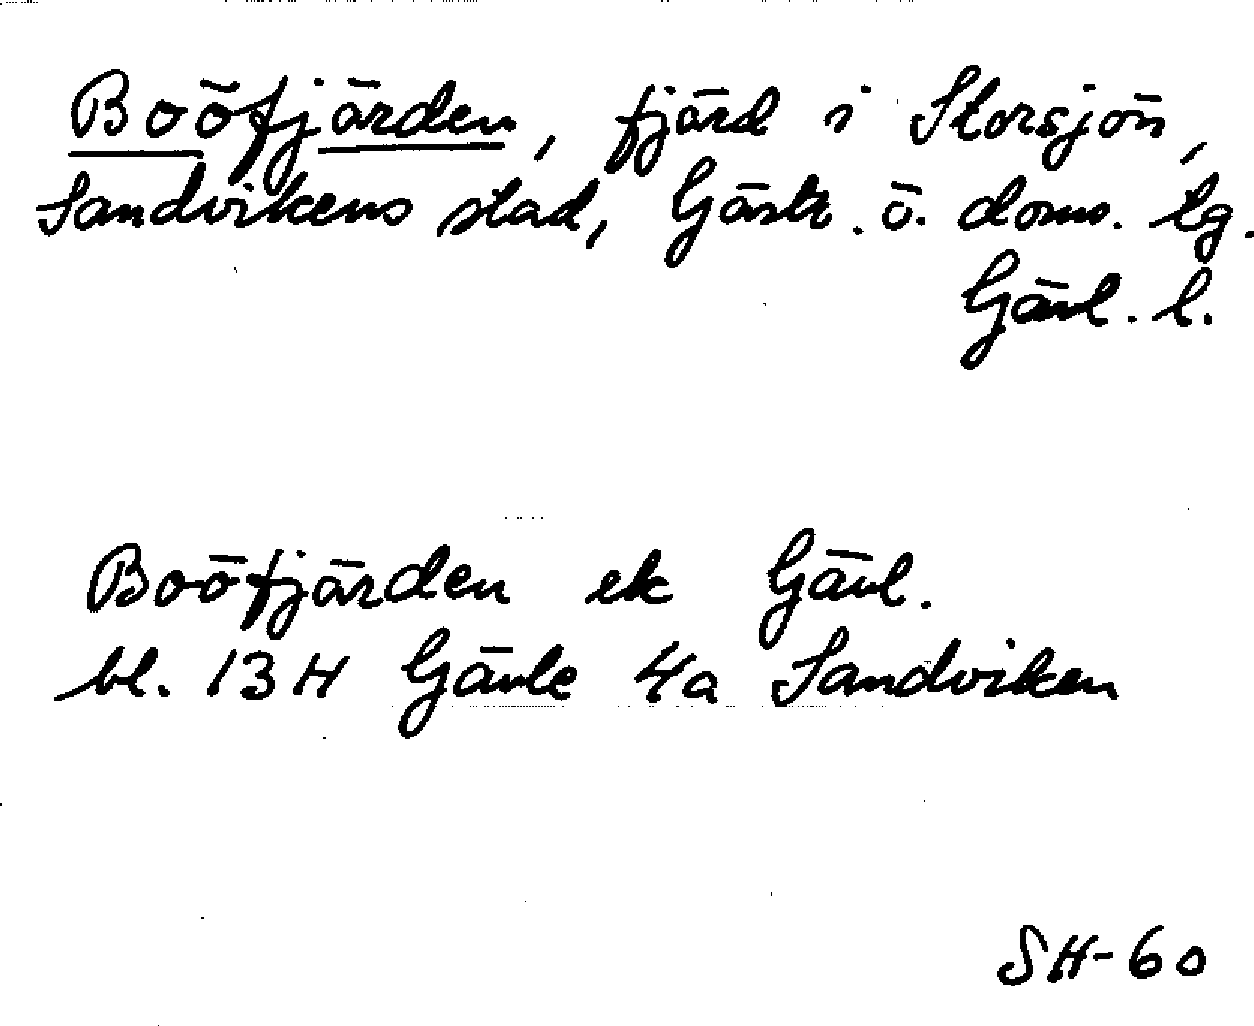 Boöfjärden, fjärd i Storsjön,
Sandvikens stad, Gästr. ö. doms. lg.
Gävl. l.
Boöfjärden ek Gävl.
bl. 13H Gävle 4a Sandviken
SH-60